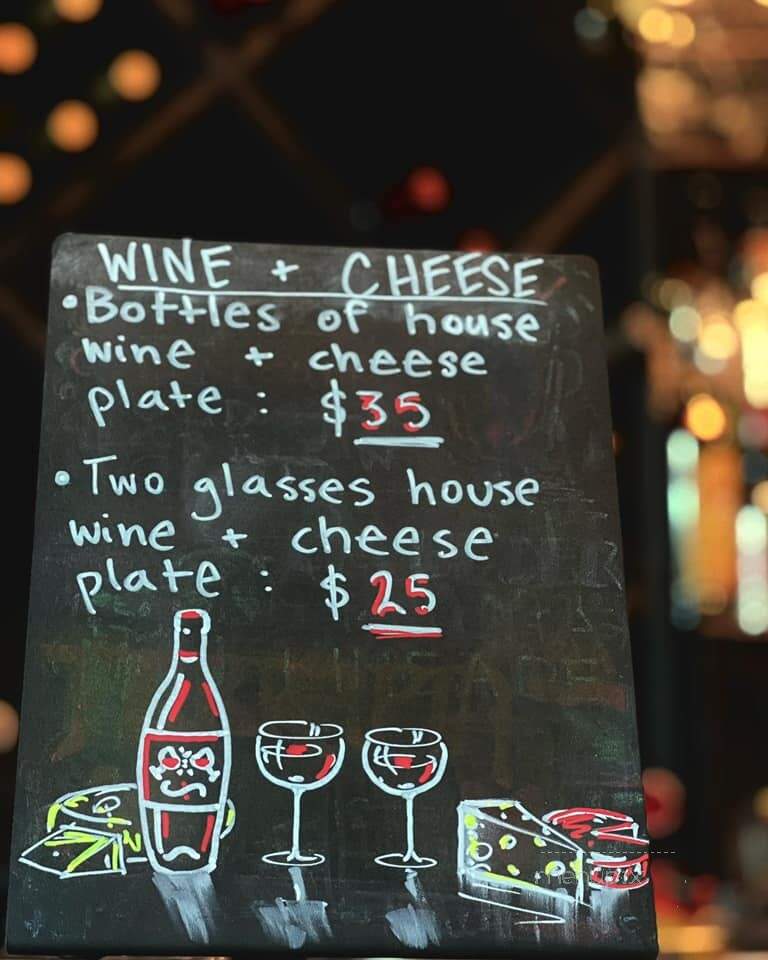 WINE + CHEESE
• Bottles of house
wine + cheese
plate : $35
• Two glasses house
wine + cheese
plate : $25